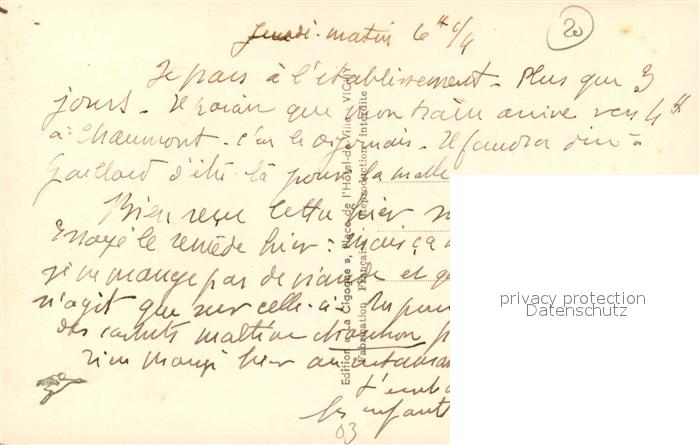 Jeudi. matin 6h 1/4
20
Je pars à l'établissement. Plus que 3
jours. Il paraît que mon train arrive vers 4h
à Chaumont. c'est le dijonnais. Il faudra dire à
Gaillard d'être là pour la malle
Bien reçu lettre hier
Essayé le remède hier: mais ça
je ne mange pas de viande et
n'agit que sur celle-ci.
des cachets maltine
rien mangé hier au
les enfants
03
Editions « La Cigogne », Place de l'Hôtel-de-Ville - VICHY
Fabrication Française - Reproduction interdite
privacy protection
Datenschutz